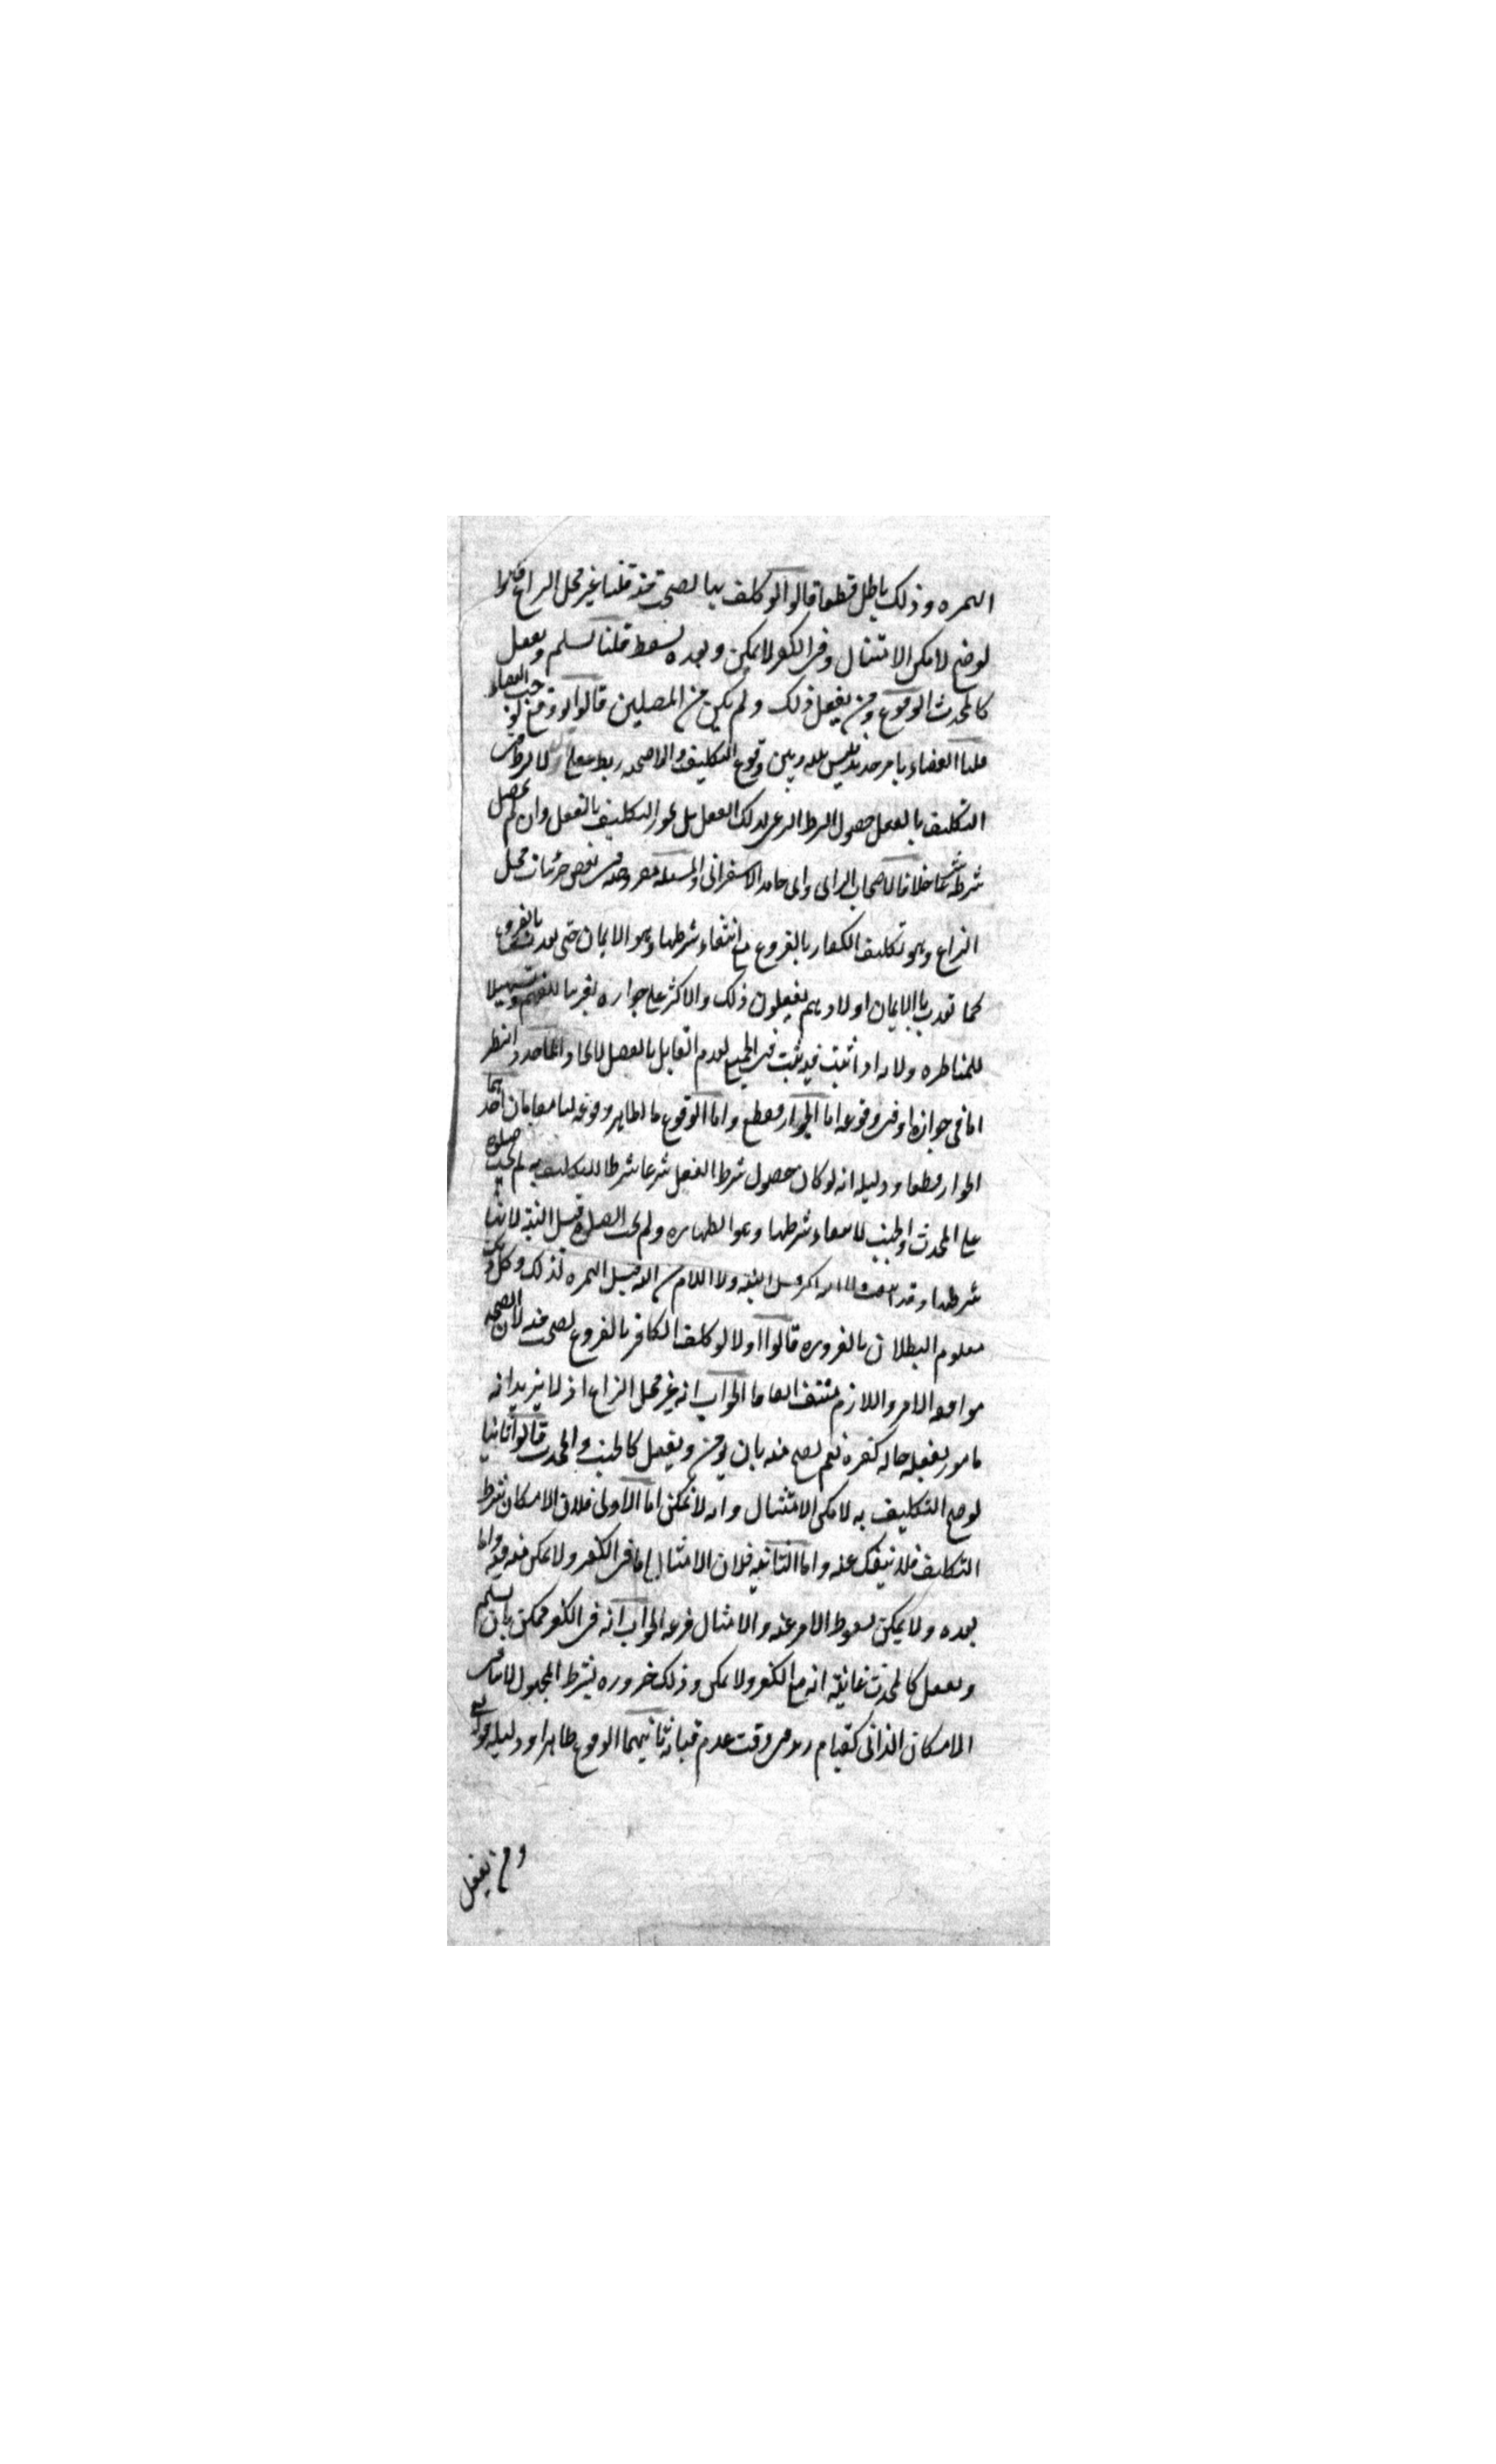 الهمزه وذلك باطل قطعا قالوا لو كلف بها لصحت منه قلنا غير محل النزاع قالوا
لو صح لامكن الامتثال وفى الكفر لا يمكن وبعده يسقط قلنا يسلم ويفعل
كالمحدث الوقوع ومن يفعل ذلك ولم نكن من المصلين قالوا لو وقع لوجب القضاء
قلنا القضاء بامر جديد فليس بينه وبين وقوع التكليف ولا صحته ربط عقلى لا يشترط فى
التكليف بالفعل حصول الشرط الشرعى لذلك الفعل بل يجوز التكليف بالفعل وان لم يحصل
شرطه شرعا خلافا لاصحاب الراى وابى حامد الاسفراينى والمسئله مفروضه فى بعض جزئيات محل
النزاع وهو تكليف الكفار بالفروع مع انتفاء شرطها وهو الايمان حتى يعذب بالفروع
كما يعذب بالايمان اولا وهم يفعلون ذلك والاكثر على جوازه تقريبا للفهم وتسهيلا
للمناظره ولانه اذا ثبت فيه ثبت فى الجميع لعدم القايل بالفصل لاتحاد الماخذ والنظر
اما فى جوازه او فى وقوعه اما الجواز فقطع واما الوقوع فالظاهر وقوعه لنا مقامان احدهما
الجواز قطعا ودليله انه لو كان حصول شرط الفعل شرعا شرطا للتكليف به لم تجب صلوة
على المحدث والجنب لانتفاء شرطها وهو الطهاره ولم تجب الصلوة قبل النيه لانها
شرطها وقد انتفت ولا الله اكبر قبل النيه ولا اللام من الله قبل الهمزه لذلك وكل ذلك
معلوم البطلان بالضروره قالوا اولا لو كلف الكافر بالفروع لصحت منه لان الصحه
موافقه الامر واللازم منتف اتفاقا الجواب انه غير محل النزاع اذ لا نريد انه
مامور بفعله حاله كفره نعم تصح منه بان يومن ويفعل كالجنب والمحدث قالوا ثانيا
لو صح التكليف به لامكن الامتثال وانه لا يمكن اما الاولى فلان الامكان شرط
التكليف فلا ينفك عنه واما الثانيه فلان الامتثال اما فى الكفر ولا يمكن منه فيه واما
بعده ولا يمكن لسقوط الامر عنه والامتثال فرعه الجواب انه فى الكفر ممكن بان يسلم
ويفعل كالمحدث غايته انه مع الكفر لا يمكن وذلك ضروره بشرط المحمول لا ينافى
الامكان الذاتى كقيام زيد فى وقت عدم قيامه ثانيهما الوقوع ظاهرا ودليله قوله تع
ومن يفعل